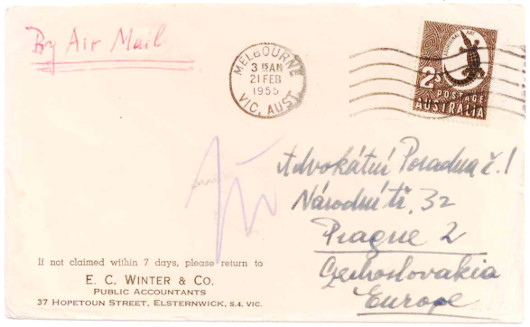 By Air Mail
MELBOURNE
3 15 AM
21 FEB
1955
VIC. AUST.
ABORIGINAL ART
2s POSTAGE
AUSTRALIA
Advokátní Poradna č. 1
Národní tř. 32
Prague 2
Czechoslovakia
Europe
If not claimed within 7 days, please return to
E. C. WINTER & CO.
PUBLIC ACCOUNTANTS
37 HOPETOUN STREET, ELSTERNWICK, S.4. VIC.